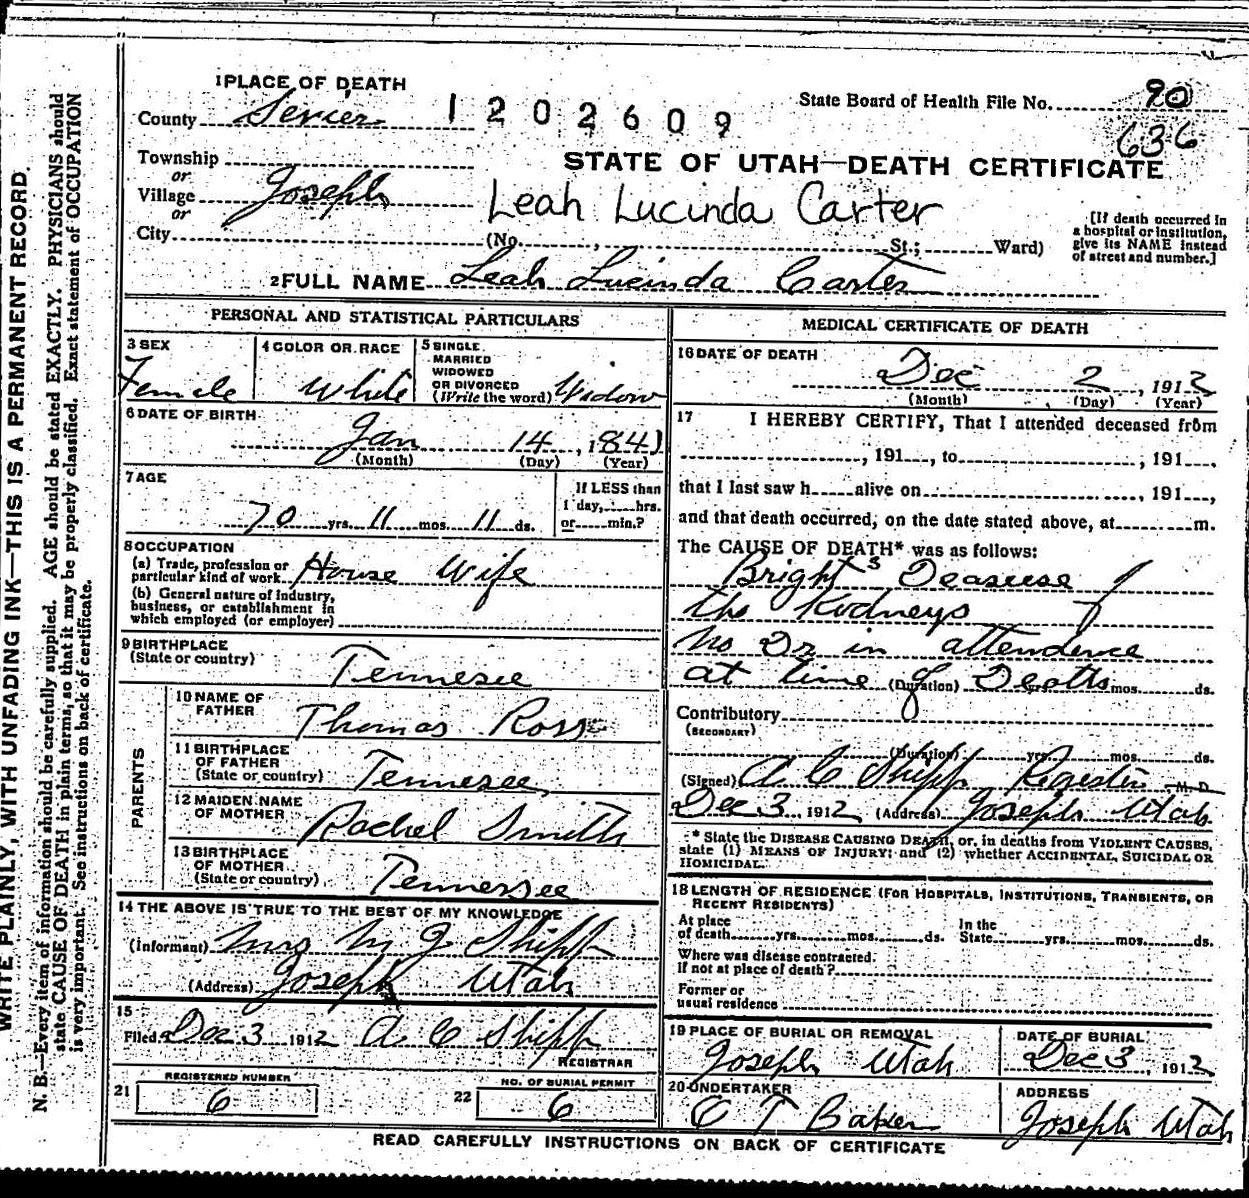 1 PLACE OF DEATH
County Sevier
1202609
State Board of Health File No. 90
636
Township
or
Village Joseph
or
City
STATE OF UTAH—DEATH CERTIFICATE
Leah Lucinda Carter
(No. , St.; Ward)
[If death occurred in
a hospital or institution,
give its NAME instead
of street and number.]
2 FULL NAME Leah Lucinda Carter
PERSONAL AND STATISTICAL PARTICULARS
3 SEX
Female
4 COLOR OR RACE
White
5 SINGLE
MARRIED
WIDOWED
OR DIVORCED
(Write the word) Widow
6 DATE OF BIRTH
Jan 14, 1841
(Month) (Day) (Year)
7 AGE
70 yrs. 11 mos. 11 ds.
If LESS than
1 day, hrs.
or min.?
8 OCCUPATION
(a) Trade, profession or
particular kind of work House Wife
(b) General nature of industry,
business, or establishment in
which employed (or employer)
9 BIRTHPLACE
(State or country) Tennesee
PARENTS
10 NAME OF
FATHER Thomas Ross
11 BIRTHPLACE
OF FATHER
(State or country) Tennesee
12 MAIDEN NAME
OF MOTHER Rachel Smith
13 BIRTHPLACE
OF MOTHER
(State or country) Tennessee
14 THE ABOVE IS TRUE TO THE BEST OF MY KNOWLEDGE
(Informant) Mrs M J Shipp
(Address) Joseph Utah
15
Filed Dec 3 1912 A C Shipp
REGISTRAR
21 REGISTERED NUMBER
6
22 NO. OF BURIAL PERMIT
6
MEDICAL CERTIFICATE OF DEATH
16 DATE OF DEATH
Dec 2, 1912
(Month) (Day) (Year)
17 I HEREBY CERTIFY, That I attended deceased from
, 191 , to , 191 ,
that I last saw h alive on , 191 ,
and that death occurred, on the date stated above, at m.
The CAUSE OF DEATH* was as follows:
Bright s Deaseese of
the Kidneys
no Dr in attendence
at time (Duration) of Death mos. ds.
Contributory
(SECONDARY)
(Duration) yrs. mos. ds.
(Signed) A C Shipp Register M. D.
Dec 3, 1912 (Address) Joseph Utah
* State the DISEASE CAUSING DEATH, or, in deaths from VIOLENT CAUSES,
state (1) MEANS OF INJURY; and (2) whether ACCIDENTAL, SUICIDAL OR
HOMICIDAL.
18 LENGTH OF RESIDENCE (FOR HOSPITALS, INSTITUTIONS, TRANSIENTS, OR
RECENT RESIDENTS)
At place
of death yrs. mos. ds.
In the
State yrs. mos. ds.
Where was disease contracted,
if not at place of death?
Former or
usual residence
19 PLACE OF BURIAL OR REMOVAL
Joseph Utah
DATE OF BURIAL
Dec 3 1912
20 UNDERTAKER
O T Baker
ADDRESS
Joseph Utah
READ CAREFULLY INSTRUCTIONS ON BACK OF CERTIFICATE
WRITE PLAINLY, WITH UNFADING INK—THIS IS A PERMANENT RECORD.
N. B.—Every item of information should be carefully supplied. AGE should be stated EXACTLY. PHYSICIANS should
state CAUSE OF DEATH in plain terms, so that it may be properly classified. Exact statement of OCCUPATION
is very important. See instructions on back of certificate.